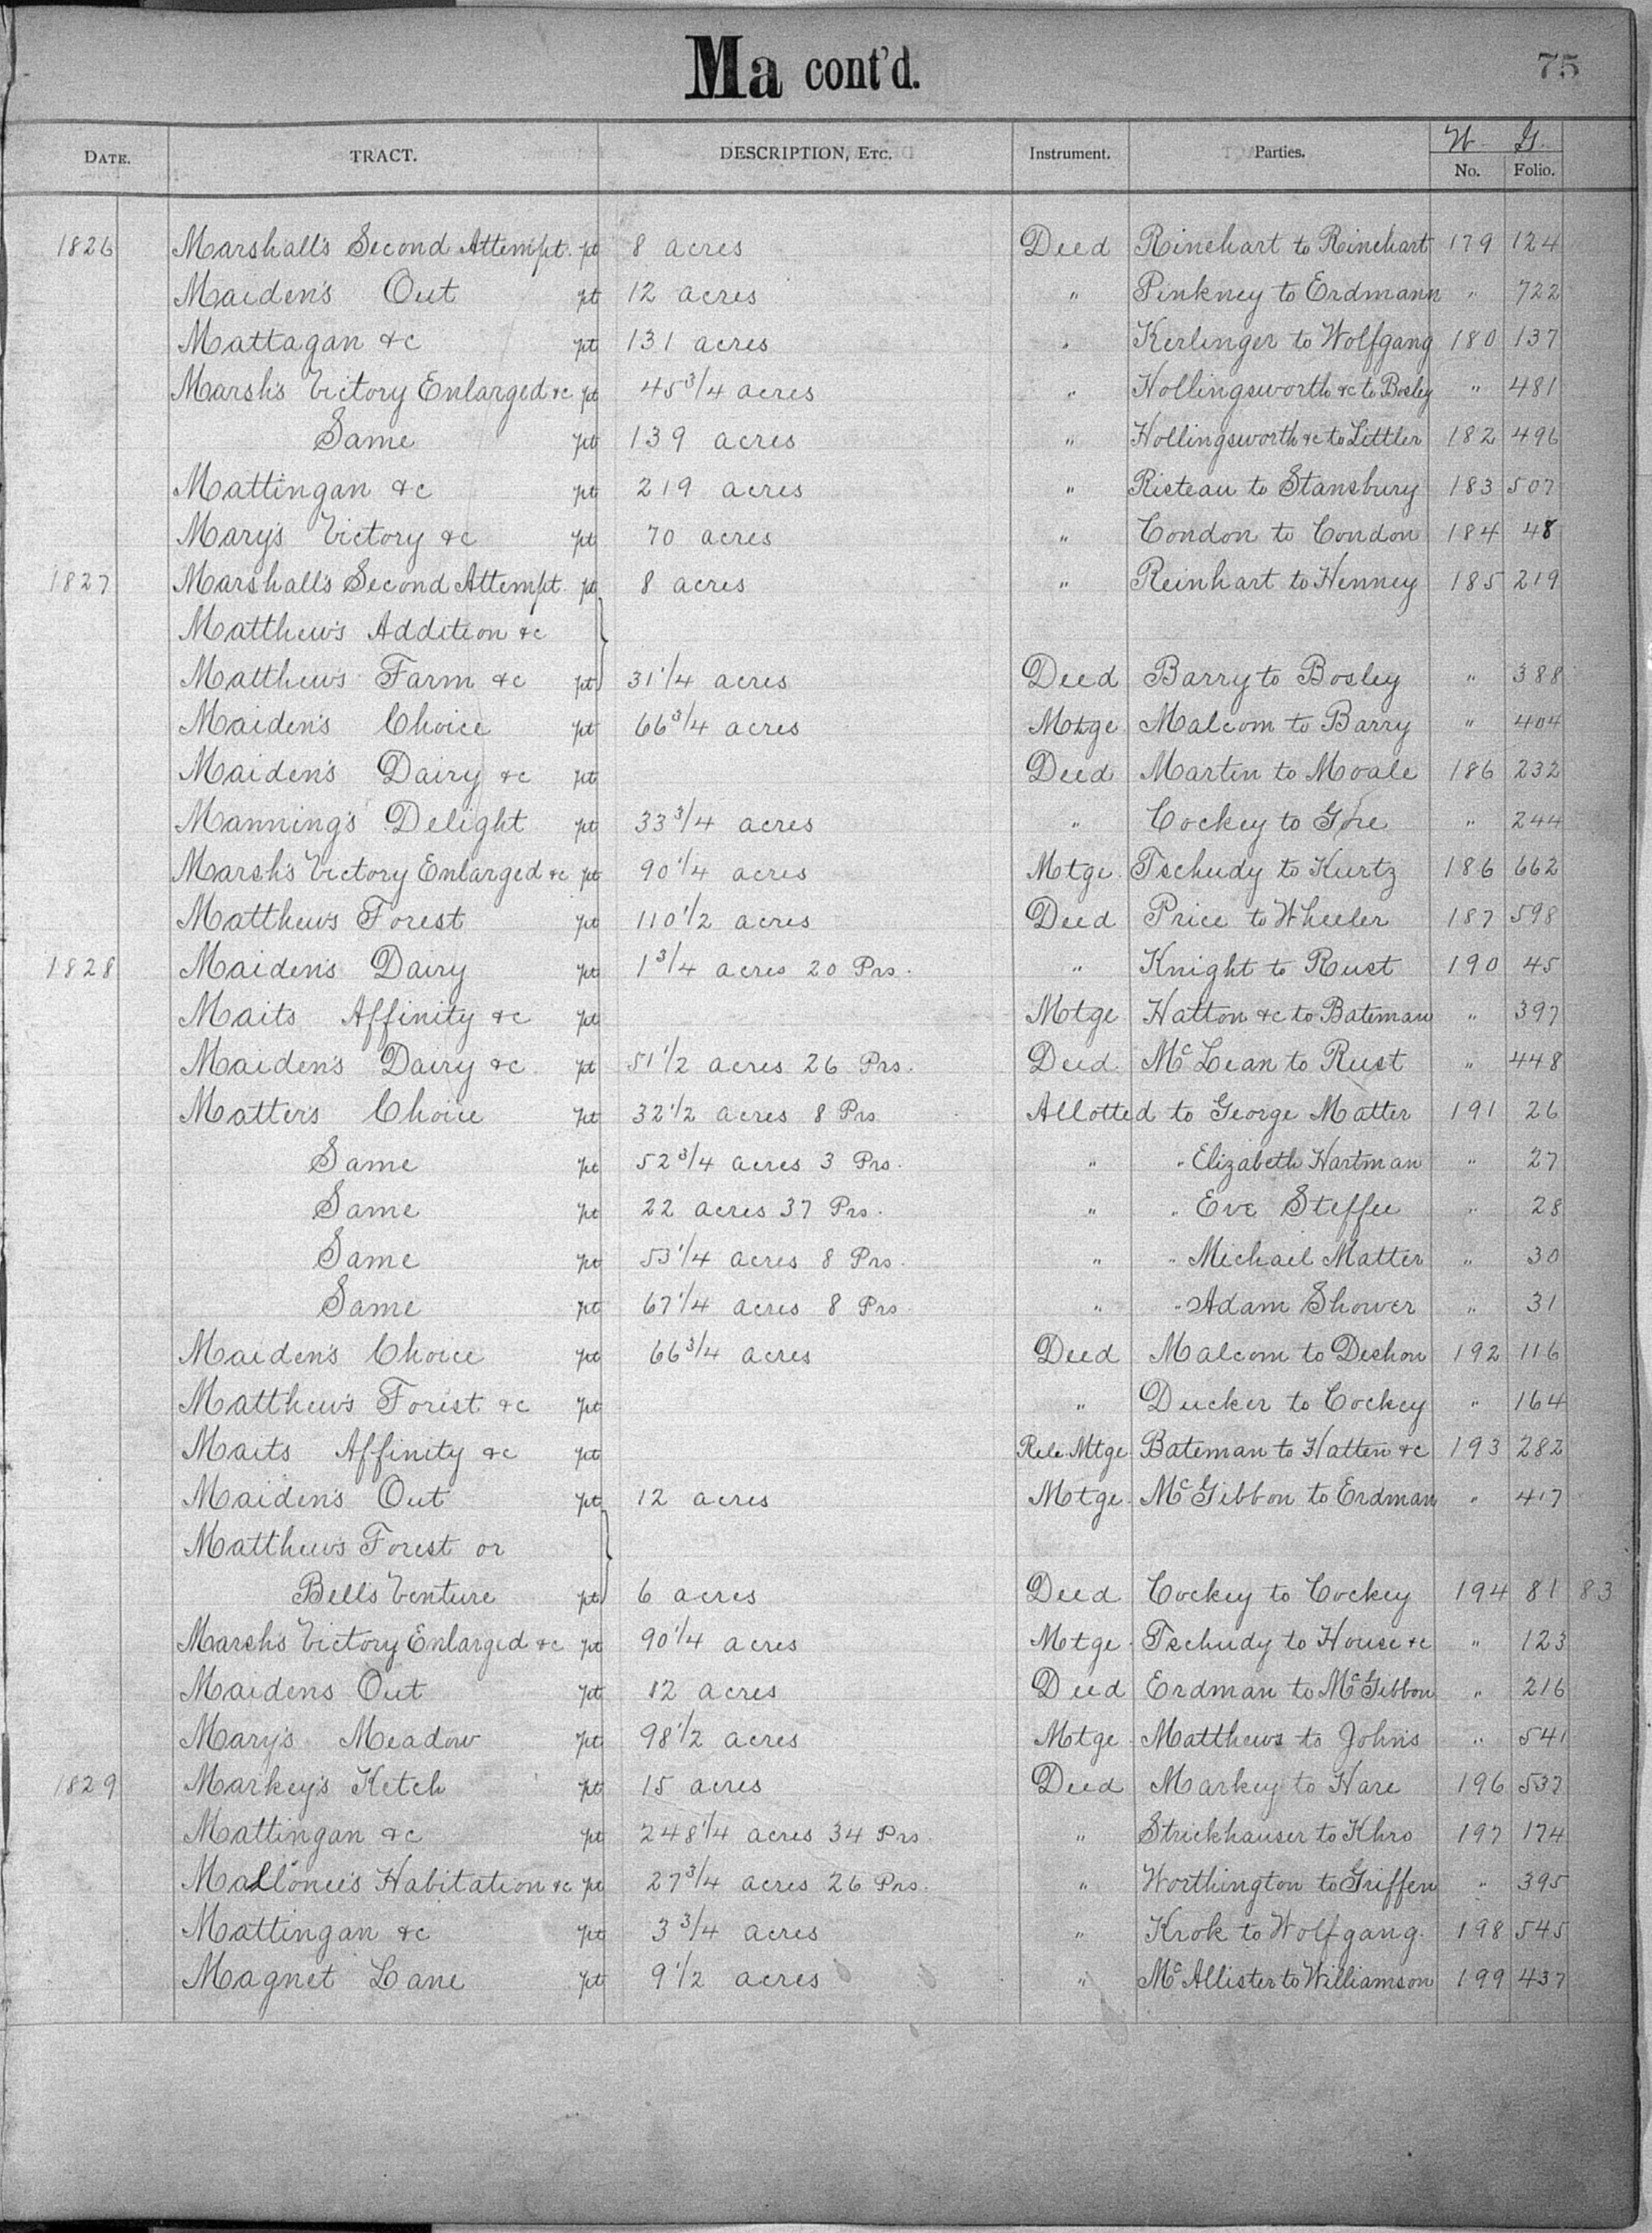 Ma cont'd. 75
DATE. TRACT. DESCRIPTION, ETC. Instrument. Parties. W. G. No. Folio.
1826 Marshall's Second Attempt. pt 8 acres Deed Rinehart to Rinehart 179 124
Maiden's Out pt 12 acres " Pinkney to Erdmann " 722
Mattagan &c pt 131 acres " Kerlinger to Wolfgang 180 137
Marsh's Victory Enlarged &c pt 45 3/4 acres " Hollingsworth &c to Bosley " 481
Same pt 139 acres " Hollingsworth &c to Littler 182 496
Mattingan &c pt 219 acres " Risteau to Stansbury 183 507
Mary's Victory &c pt 70 acres " Condon to Condon 184 48
1827 Marshall's Second Attempt. pt 8 acres " Reinhart to Henney 185 219
Matthew's Addition &c
Matthews Farm &c pt } 31 1/4 acres Deed Barry to Bosley " 388
Maiden's Choice pt 66 3/4 acres Mtge Malcom to Barry " 404
Maiden's Dairy &c pt Deed Martin to Moale 186 232
Manning's Delight pt 33 3/4 acres " Cockey to Gore " 244
Marsh's Victory Enlarged &c pt 90 1/4 acres Mtge. Tschudy to Kurtz 186 662
Matthews Forest pt 110 1/2 acres Deed Price to Wheeler 187 598
1828 Maiden's Dairy pt 1 3/4 acres 20 Prs. " Knight to Rust 190 45
Maits Affinity &c pt Mtge Hatton &c to Bateman " 397
Maiden's Dairy &c pt 51 1/2 acres 26 Prs. Deed McLean to Rust " 448
Matter's Choice pt 32 1/2 acres 8 Prs Allotted to George Matter 191 26
Same pt 52 3/4 acres 3 Prs. " " Elizabeth Hartman " 27
Same pt 22 acres 37 Prs. " " Eve Steffee " 28
Same pt 53 1/4 acres 8 Prs. " " Michael Matter " 30
Same pt 67 1/4 acres 8 Prs. " " Adam Shower " 31
Maiden's Choice pt 66 3/4 acres Deed Malcom to Deshon 192 116
Matthew's Forest &c pt " Ducker to Cockey " 164
Maits Affinity &c pt Rele. Mtge Bateman to Hatten &c 193 282
Maiden's Out pt 12 acres Mtge. McGibbon to Erdman " 417
Matthews Forest or
Bell's Venture pt } 6 acres Deed Cockey to Cockey 194 81 83
Marsh's Victory Enlarged &c pt 90 1/4 acres Mtge. Tschudy to House &c " 123
Maidens Out pt 12 acres Deed Erdman to McGibbon " 216
Mary's Meadow pt 98 1/2 acres Mtge Matthews to Johns " 541
1829 Markey's Ketch pt 15 acres Deed Markey to Hare 196 537
Mattingan &c pt 248 1/4 acres 34 Prs. " Strickhauser to Khro 197 174
Mallonee's Habitation &c pt 27 3/4 acres 26 Prs. " Worthington to Griffen " 395
Mattingan &c pt 3 3/4 acres " Krok to Wolfgang. 198 545
Magnet Lane pt 9 1/2 acres " McAllister to Williamson 199 437